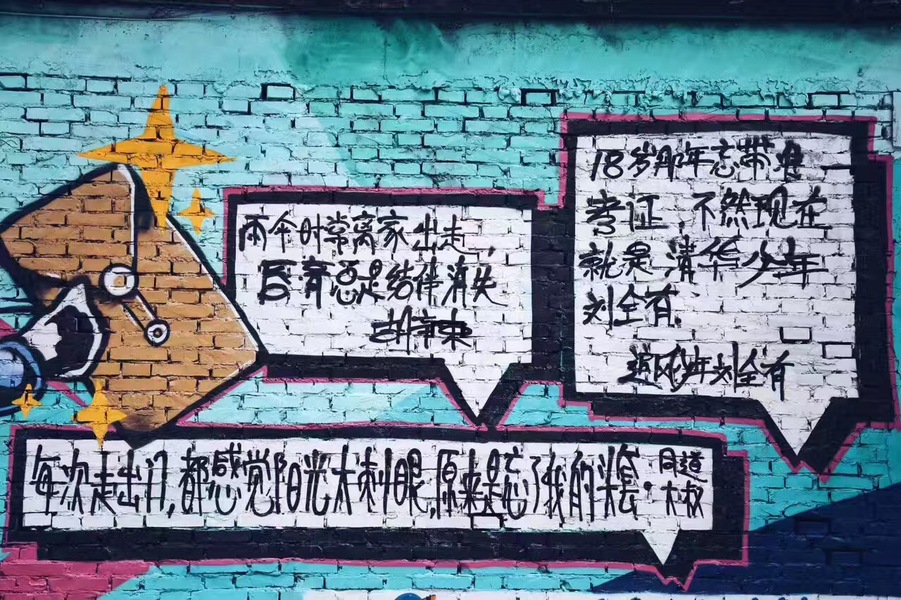 雨伞时常离家出走,
唇膏总是结伴消失
胡辛束
18岁那年忘带准
考证,不然现在
就是清华少年
刘全有.
追风少年刘全有
每次走出门,都感觉阳光太刺眼,原来是忘了我的头套·同道
大叔